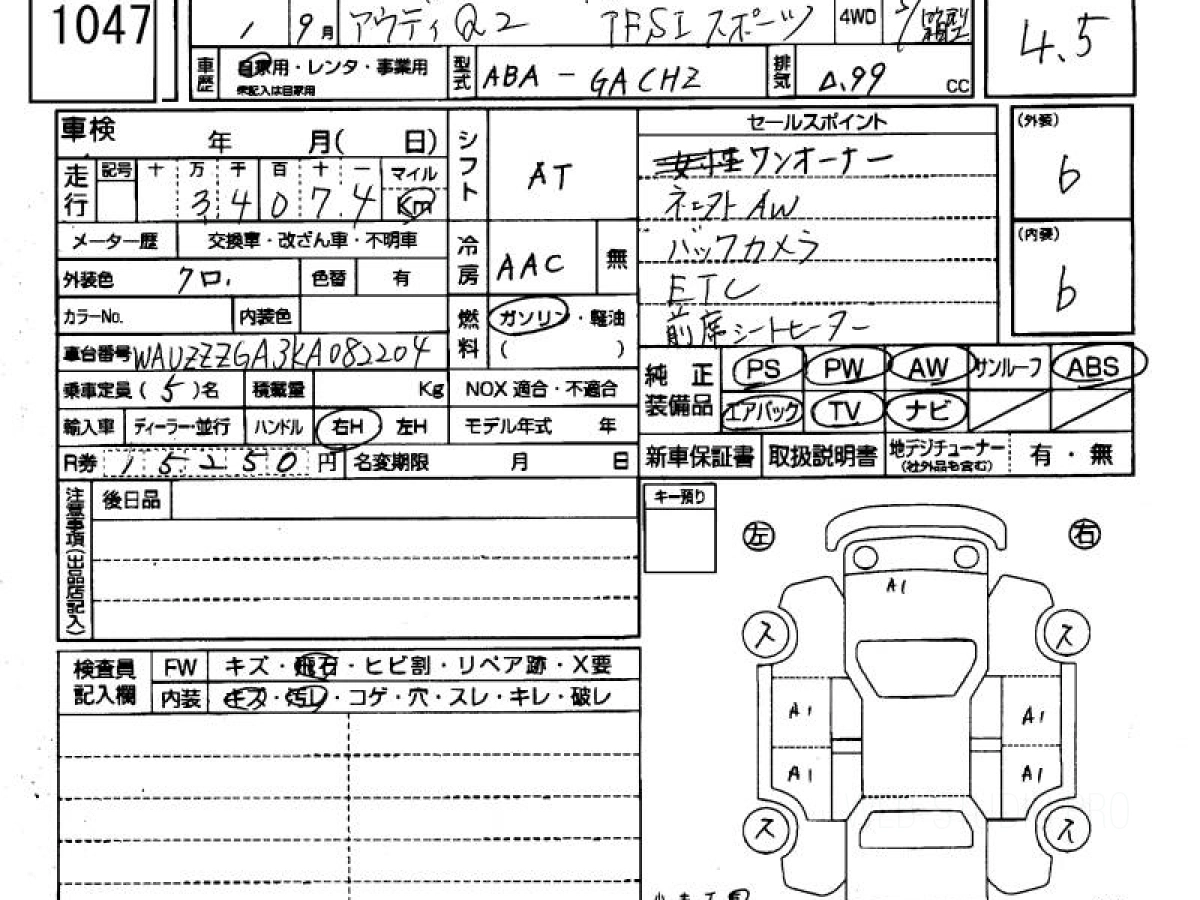 1047
1 9月 アウディ Q2 TFSI スポーツ 4WD 5/箱型
4.5
車歴 自家用・レンタ・事業用 未記入は自家用 型式 ABA - GACHZ 排気 0.99 CC
車検 年 月( 日)
走行 記号 十 万 千 百 十 一 マイル
3 4 0 7.4 Km
メーター歴 交換車・改ざん車・不明車
外装色 クロ. 色替 有
カラーNo. 内装色
車台番号 WAUZZZGA3KA082204
乗車定員(5)名 積載量 Kg NOX 適合・不適合
輸入車 ディーラー・並行 ハンドル 右H 左H モデル年式 年
R券 15250 円 名変期限 月 日
シフト AT
冷房 AAC 無
燃料 ガソリン・軽油
( )
セールスポイント
ワンオーナー
AW
バックカメラ
ETC
前席シートヒーター
(外装)
6
(内装)
6
純正装備品 PS PW AW サンルーフ ABS
エアバック TV ナビ
新車保証書 取扱説明書 地デジチューナー (社外品も含む) 有・無
注意事項(出品店記入) 後日品
キー預り
左 右
A1
ス ス
A1 A1
A1 A1
ス ス
検査員記入欄 FW キズ・飛石・ヒビ割・リペア跡・X要
内装 キズ・汚レ・コゲ・穴・スレ・キレ・破レ